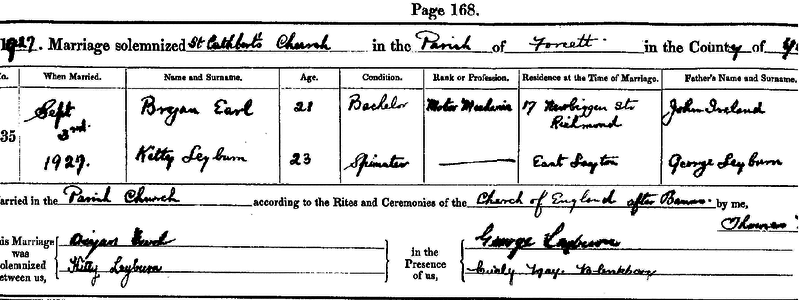 Page 168.
1927. Marriage solemnized St Cuthbert's Church in the Parish of Forcett in the County of
When Married. Name and Surname. Age. Condition. Rank or Profession. Residence at the Time of Marriage. Father's Name and Surname.
35 Sept 3rd 1927. Bryan Earl 21 Bachelor Motor Mechanic 17 Newbiggen Str Richmond John Ireland
Kitty Leyburn 23 Spinster East Layton George Leyburn
arried in the Parish Church according to the Rites and Ceremonies of the Church of England after Banns. by me,
Thomas
is Marriage was olemnized etween us,
Bryan Earl
Kitty Leyburn
in the Presence of us,
George Leyburn
May